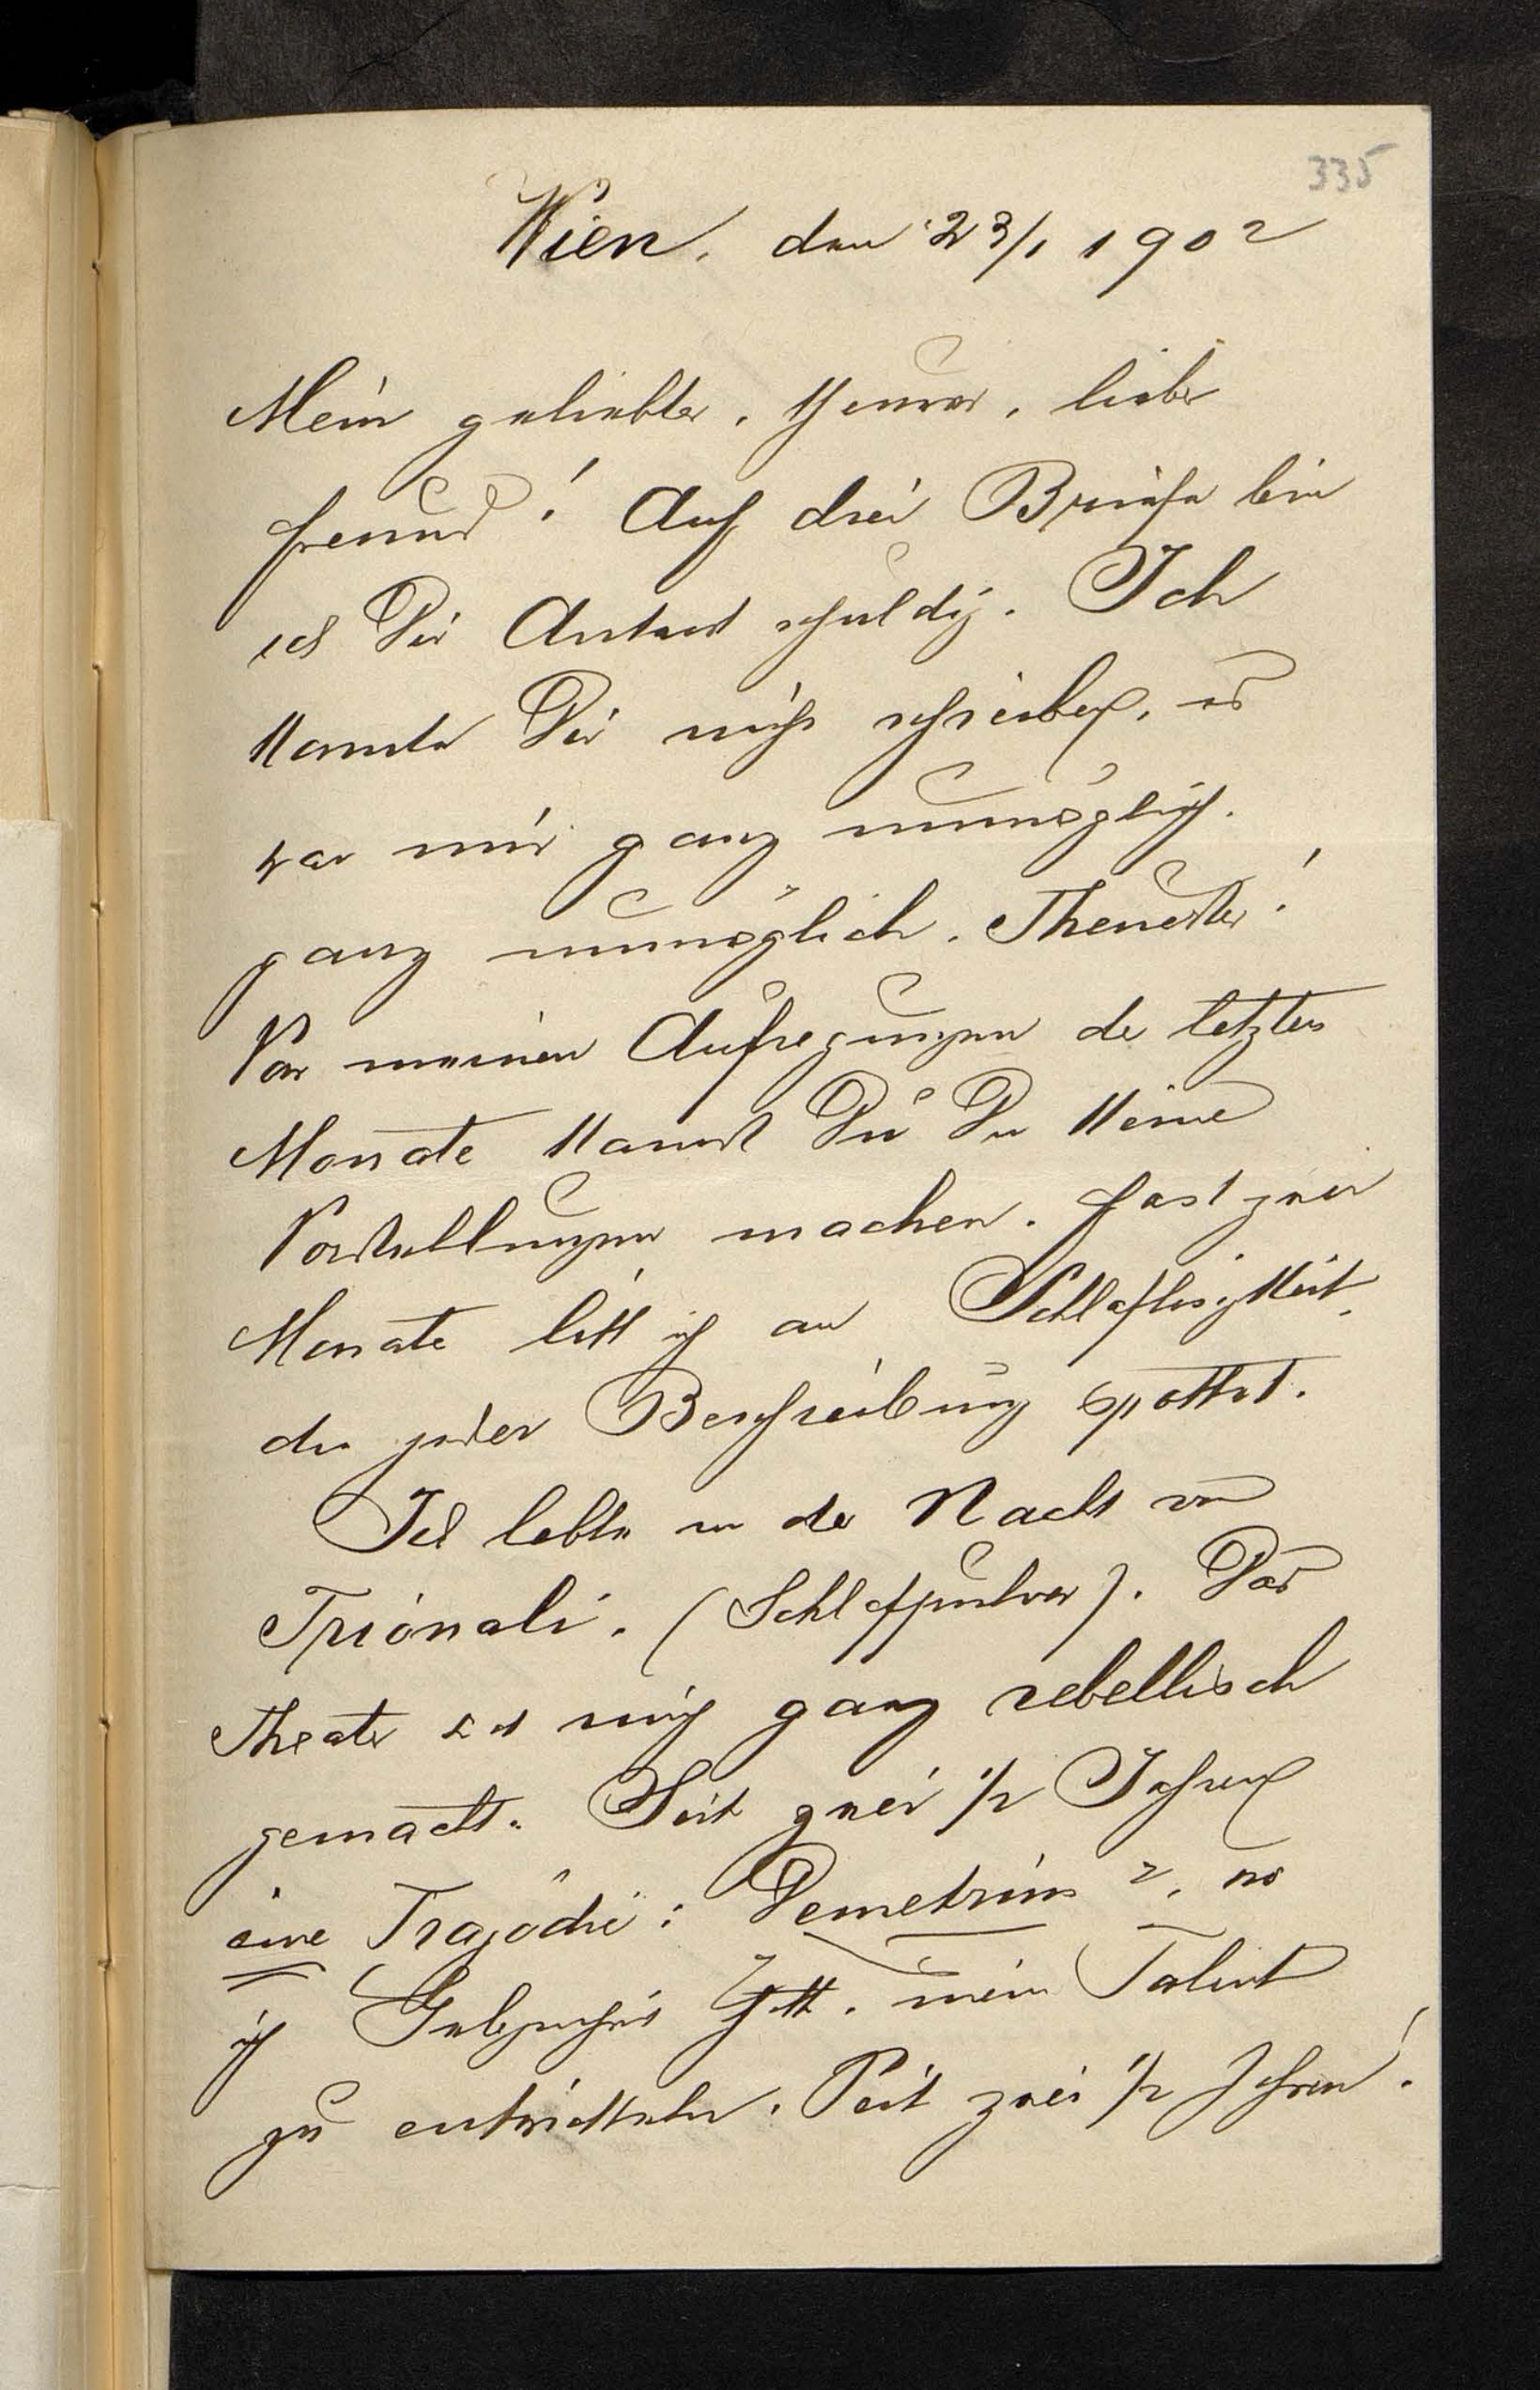 335
Wien, den 23/1 1902
Mein geliebter, theurer, lieber
Freund! Auf drei Briefe bin
ich Dir Antwort schuldig. Ich
konnte Dir nicht schreiben, es
war mir ganz unmöglich.
ganz unmöglich, Theuerster!
Von meinen Aufregungen der letzten
Monate kannst Du Du keine
Vorstellungen machen. Fast zwei
Monate litt ich an Schlaflosigkeit,
die jeder Beschreibung spottet.
Ich lebte in der Nacht von
Trionali. (Schlafpulver). Das
Theater hat mich ganz rebellisch
gemacht. Seit zwei 1/2 Jahren
eine Tragödie: Demetrius, wo
ich Gelegenheit hatte, mein Talent
zu entwickeln. Seit zwei 1/2 Jahren!